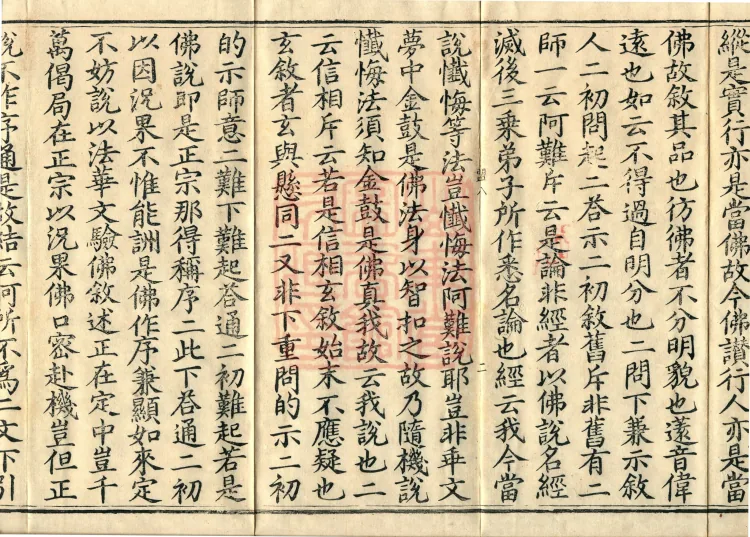 縱是實行亦是當佛故今佛讃行人亦是當
佛故敘其品也彷彿者不分明貌也薳音偉
遠也如云不得過自明分也二問下兼示敘
人二初問起二荅示二初敘舊斥非舊有二
師一云阿難斥云是論非經者以佛說名經
滅後三乘弟子所作悉名論也經云我今當
說懺悔等法豈懺悔法阿難說耶豈非乖文
夢中金鼓是佛法身以智扣之故乃隨機說
懺悔法須知金鼓是佛真我故云我說也二
云信相斥云若是信相玄敘始末不應疑也
玄敘者玄與懸同二又非下重問的示二初
的示師意二難下難起荅通二初難起若是
佛說即是正宗那得稱序二此下荅通二初
以因況果不惟能詶是佛作序兼顯如來定
不妨說以法華文驗佛敘述正在定中豈千
萬偈局在正宗以況果佛口密赴機豈但正
說不作序通是故結云何所不爲二文下引